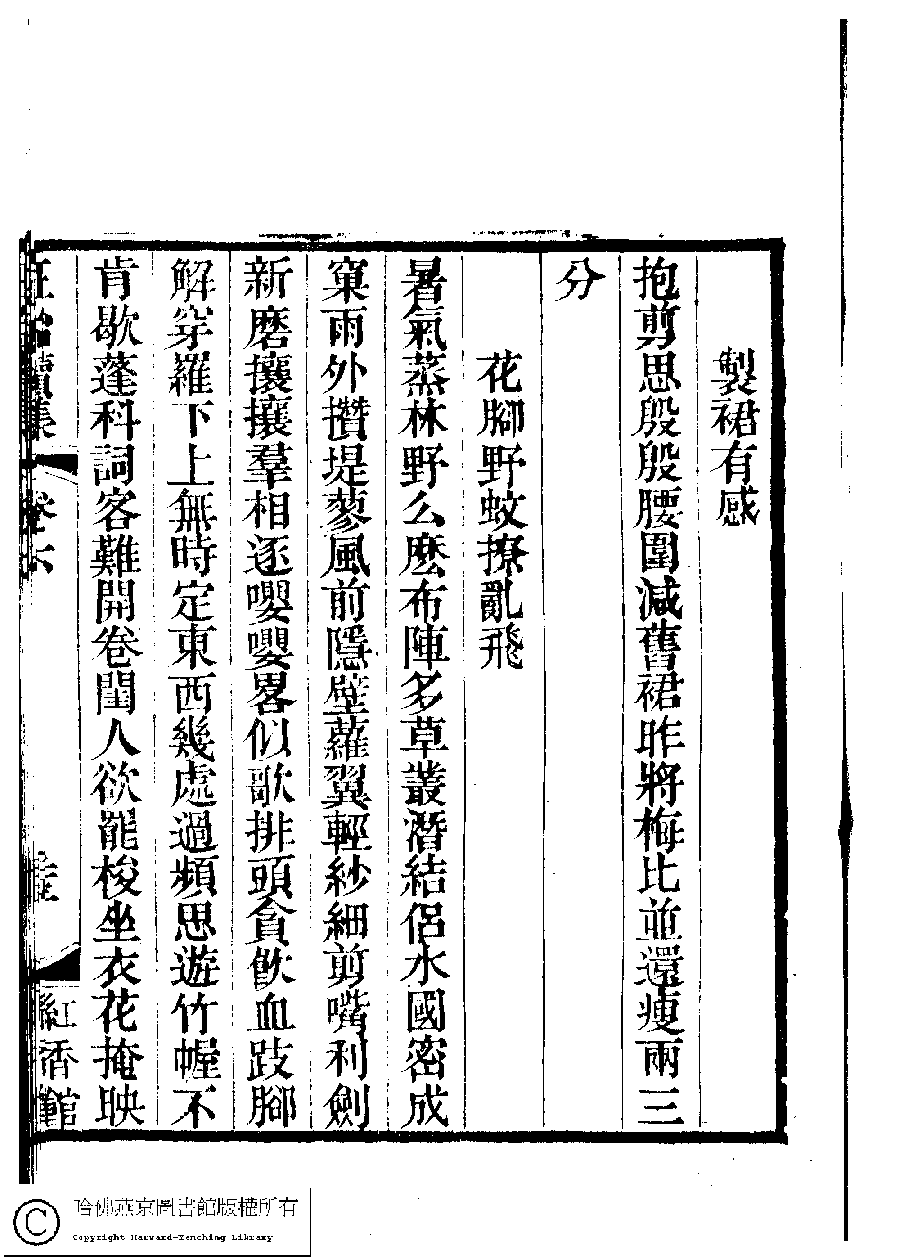 製裙有感
抱剪思殷殷腰圍減舊裙昨將梅比並還瘦兩三
分
花腳野蚊撩亂飛
暑氣蒸林野么麽布陣多草叢潛結侶水國密成
窠雨外攢堤蓼風前隱壁蘿翼輕紗細剪嘴利劍
新磨攘攘羣相逐嚶嚶畧似歌排頭貪飲血跂腳
解穿羅下上無時定東西幾處過頻思遊竹幄不
肯歇蓬科詞客難開卷閨人欲罷梭坐衣花掩映
續集 卷六
紅香館
哈佛燕京圖書館版權所有
Copyright Harvard-Yenching Library